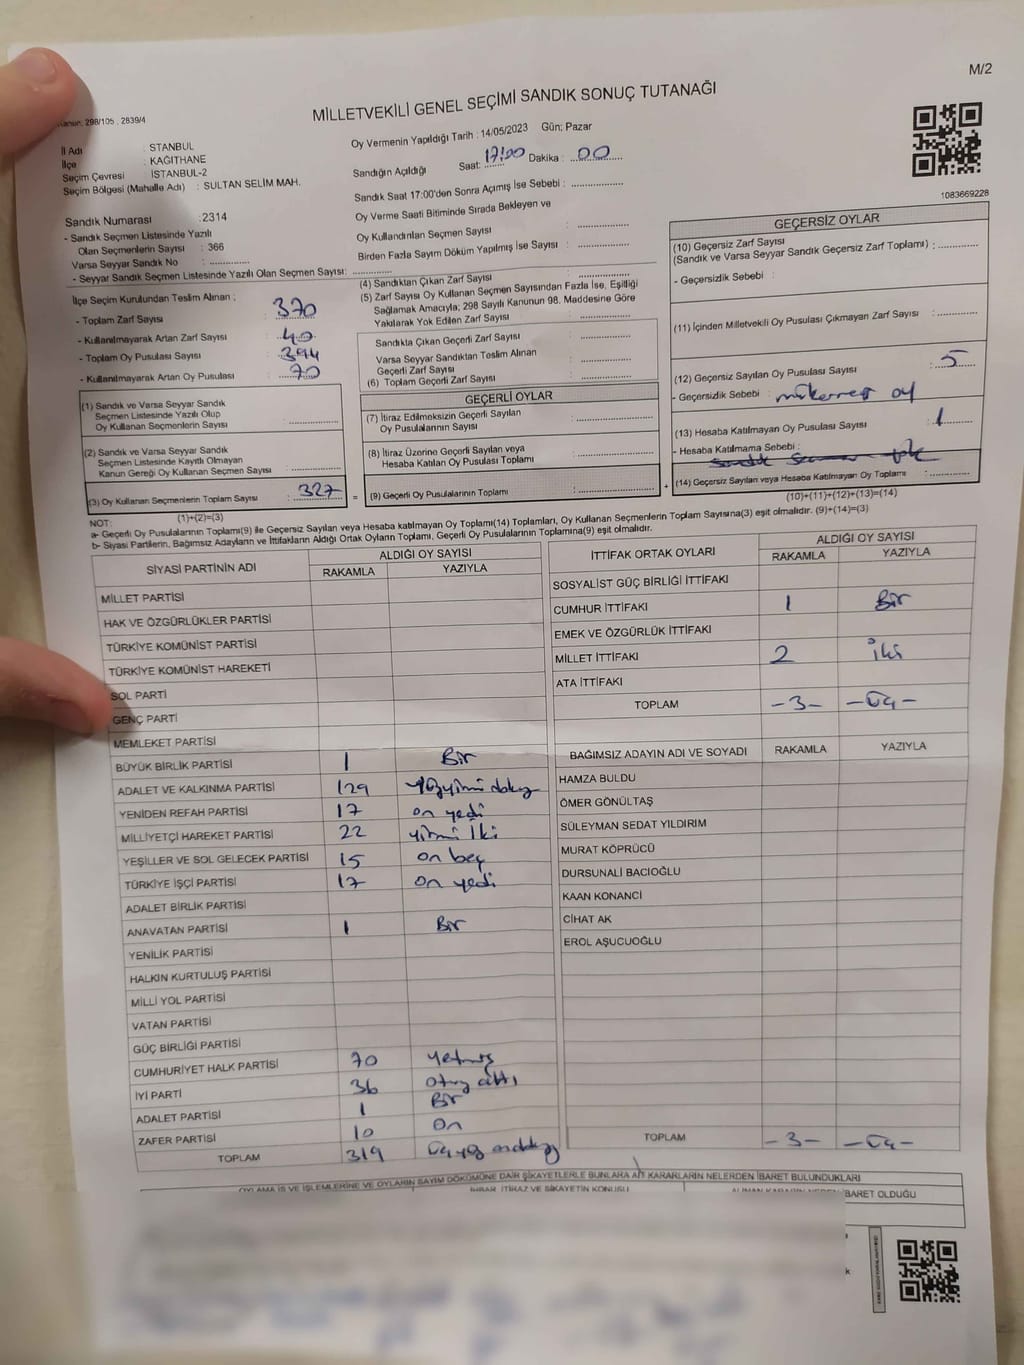 M/2
Kanun: 298/105 , 2839/4
MİLLETVEKİLİ GENEL SEÇİMİ SANDIK SONUÇ TUTANAĞI
İl Adı : İSTANBUL
İlçe : KAĞITHANE
Seçim Çevresi : İSTANBUL-2
Seçim Bölgesi (Mahalle Adı) : SULTAN SELİM MAH.
Sandık Numarası : 2314
- Sandık Seçmen Listesinde Yazılı
Olan Seçmenlerin Sayısı : 366
Varsa Seyyar Sandık No :
- Seyyar Sandık Seçmen Listesinde Yazılı Olan Seçmen Sayısı:
Oy Vermenin Yapıldığı Tarih : 14/05/2023 Gün; Pazar
Sandığın Açıldığı Saat: 17:00 Dakika : 00
Sandık Saat 17:00'den Sonra Açımış İse Sebebi :
Oy Verme Saati Bitiminde Sırada Bekleyen ve
Oy Kullandırılan Seçmen Sayısı :
Birden Fazla Sayım Döküm Yapılmış İse Sayısı :
1083669228
İlçe Seçim Kurulundan Teslim Alınan ;
- Toplam Zarf Sayısı : 370
- Kullanılmayarak Artan Zarf Sayısı : 40
- Toplam Oy Pusulası Sayısı : 394
- Kullanılmayarak Artan Oy Pusulası : 70
(1) Sandık ve Varsa Seyyar Sandık
Seçmen Listesinde Yazılı Olup
Oy Kullanan Seçmenlerin Sayısı :
(2) Sandık ve Varsa Seyyar Sandık
Seçmen Listesinde Kayıtlı Olmayan
Kanun Gereği Oy Kullanan Seçmen Sayısı :
(3) Oy Kullanan Seçmenlerin Toplam Sayısı : 327 =
(1)+(2)=(3)
(4) Sandıktan Çıkan Zarf Sayısı :
(5) Zarf Sayısı Oy Kullanan Seçmen Sayısından Fazla İse, Eşitliği
Sağlamak Amacıyla; 298 Sayılı Kanunun 98. Maddesine Göre
Yakılarak Yok Edilen Zarf Sayısı :
Sandıkta Çıkan Geçerli Zarf Sayısı :
Varsa Seyyar Sandıktan Teslim Alınan
Geçerli Zarf Sayısı :
(6) Toplam Geçerli Zarf Sayısı :
GEÇERLİ OYLAR
(7) İtiraz Edilmeksizin Geçerli Sayılan
Oy Pusulalarının Sayısı :
(8) İtiraz Üzerine Geçerli Sayılan veya
Hesaba Katılan Oy Pusulası Toplamı :
(9) Geçerli Oy Pusulalarının Toplamı : +
GEÇERSİZ OYLAR
(10) Geçersiz Zarf Sayısı
(Sandık ve Varsa Seyyar Sandık Geçersiz Zarf Toplamı) :
- Geçersizlik Sebebi :
(11) İçinden Milletvekili Oy Pusulası Çıkmayan Zarf Sayısı :
(12) Geçersiz Sayılan Oy Pusulası Sayısı : 5
- Geçersizlik Sebebi : mükerrer oy
(13) Hesaba Katılmayan Oy Pusulası Sayısı : 1
- Hesaba Katılmama Sebebi :
(14) Geçersiz Sayılan veya Hesaba Katılmayan Oy Toplamı :
(10)+(11)+(12)+(13)=(14)
NOT:
a- Geçerli Oy Pusulalarının Toplamı(9) ile Geçersiz Sayılan veya Hesaba katılmayan Oy Toplamı(14) Toplamları, Oy Kullanan Seçmenlerin Toplam Sayısına(3) eşit olmalıdır. (9)+(14)=(3)
b- Siyasi Partilerin, Bağımsız Adayların ve İttifakların Aldığı Ortak Oyların Toplamı, Geçerli Oy Pusulalarının Toplamına(9) eşit olmalıdır.
SİYASİ PARTİNİN ADI ALDIĞI OY SAYISI
RAKAMLA YAZIYLA
MİLLET PARTİSİ
HAK VE ÖZGÜRLÜKLER PARTİSİ
TÜRKİYE KOMÜNİST PARTİSİ
TÜRKİYE KOMÜNİST HAREKETİ
SOL PARTİ
GENÇ PARTİ
MEMLEKET PARTİSİ
BÜYÜK BİRLİK PARTİSİ 1 Bir
ADALET VE KALKINMA PARTİSİ 129 yüzyirmi dokuz
YENİDEN REFAH PARTİSİ 17 on yedi
MİLLİYETÇİ HAREKET PARTİSİ 22 yirmi İki
YEŞİLLER VE SOL GELECEK PARTİSİ 15 on beş
TÜRKİYE İŞÇİ PARTİSİ 17 on yedi
ADALET BİRLİK PARTİSİ
ANAVATAN PARTİSİ 1 Bir
YENİLİK PARTİSİ
HALKIN KURTULUŞ PARTİSİ
MİLLİ YOL PARTİSİ
VATAN PARTİSİ
GÜÇ BİRLİĞİ PARTİSİ
CUMHURİYET HALK PARTİSİ 70 yetmiş
İYİ PARTİ 36 otuz altı
ADALET PARTİSİ 1 Bir
ZAFER PARTİSİ 10 on
TOPLAM 319 üçyüz ondokuz
İTTİFAK ORTAK OYLARI ALDIĞI OY SAYISI
RAKAMLA YAZIYLA
SOSYALİST GÜÇ BİRLİĞİ İTTİFAKI
CUMHUR İTTİFAKI 1 Bir
EMEK VE ÖZGÜRLÜK İTTİFAKI
MİLLET İTTİFAKI 2 iki
ATA İTTİFAKI
TOPLAM -3- -üç-
BAĞIMSIZ ADAYIN ADI VE SOYADI RAKAMLA YAZIYLA
HAMZA BULDU
ÖMER GÖNÜLTAŞ
SÜLEYMAN SEDAT YILDIRIM
MURAT KÖPRÜCÜ
DURSUNALİ BACIOĞLU
KAAN KONANCİ
CİHAT AK
EROL AŞUCUOĞLU
TOPLAM -3- -üç-
OYLAMA İŞ VE İŞLEMLERİNE VE OYLARIN SAYIM DÖKÜMÜNE DAİR ŞİKAYETLERLE BUNLARA AİT KARARLARIN NELERDEN İBARET BULUNDUKLARI
İHBAR, İTİRAZ VE ŞİKAYETİN KONUSU
ALINAN KARARIN NEDEN İBARET OLDUĞU